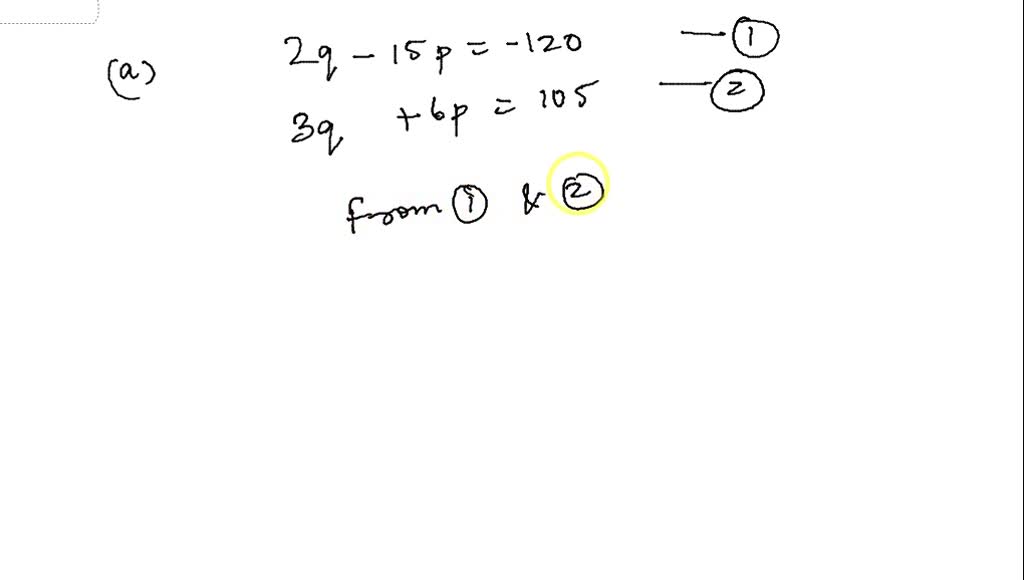 (a) 2q - 15p = -120 — ①
3q + 6p = 105 — ②
from ① & ②